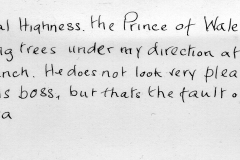 al Highness. the Prince of Wale
ig trees under my direction at
nch. He does not look very plea
is boss, but thats the fault o
a